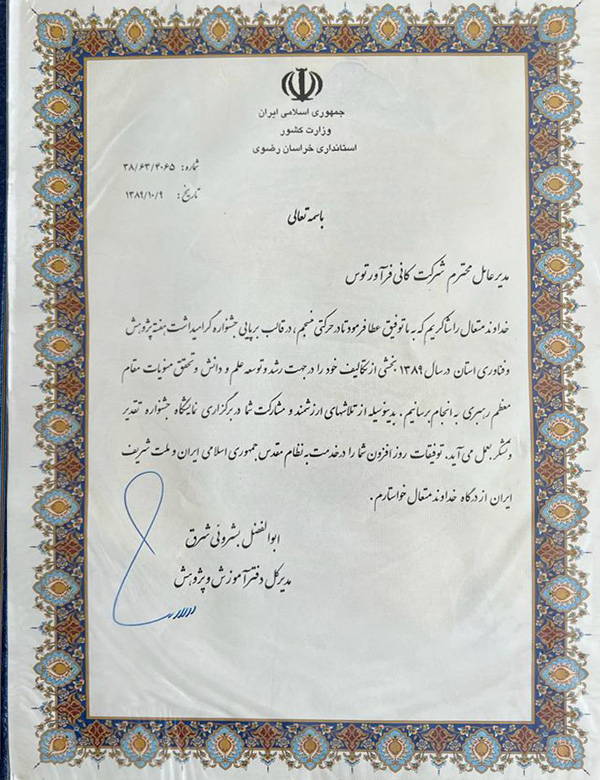 جمهوری اسلامی ایران
وزارت کشور
استانداری خراسان رضوی
شماره: ۳۸/۶۳/۴۰۶۵
تاریخ: ۱۳۸۹/۱۰/۹
باسمه تعالی
مدیر عامل محترم شرکت کانی فرآور توس
خداوند متعال را شاکریم که به ما توفیق عطا فرمود تا در حرکتی منسجم، در قالب برپایی جشنواره گرامیداشت هفته پژوهش
و فناوری استان در سال ۱۳۸۹ بخشی از تکالیف خود را در جهت رشد و توسعه علم و دانش و تحقق منویات مقام
معظم رهبری به انجام برسانیم. بدینوسیله از تلاشهای ارزشمند و مشارکت شما در برگزاری نمایشگاه جشنواره تقدیر
و تشکر بعمل می آید. توفیقات روز افزون شما را در خدمت به نظام مقدس جمهوری اسلامی ایران و ملت شریف
ایران از درگاه خداوند متعال خواستارم.
ابوالفضل بشروئی شرق
مدیرکل دفتر آموزش و پژوهش